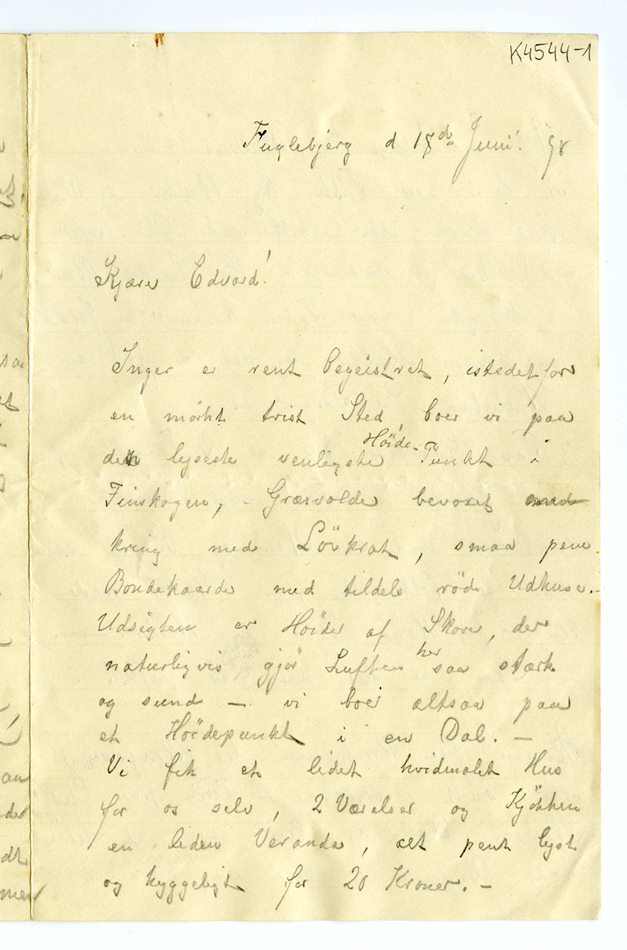 K4544-1
Fuglebjerg d 18de Juni! 98
Kjære Edvard!
Inger er rent begeistret, istedetfor
en mørkt trist Sted boer vi paa
den lyseste venligste Høide- Punkt i
Finskogen, - Græsvolde bevoxet med
kring med Løvkrat, smaa pene
Bondegaarde med tildels røde Udhuse.
Udsigten er Høider af Skove, der
naturligvis gjør Luften her saa stærk
og sund — vi boer altsaa paa
et Høidepunkt i en Dal. —
Vi fik et lidet hvidmalet Hus
for os selv, 2 Værelser og Kjøkken
en liden Veranda, alt pent lyst
og hyggeligt for 20 Kroner. —